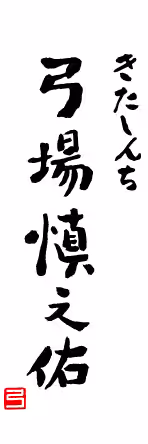 きたしんち
弓場慎之佑
弓